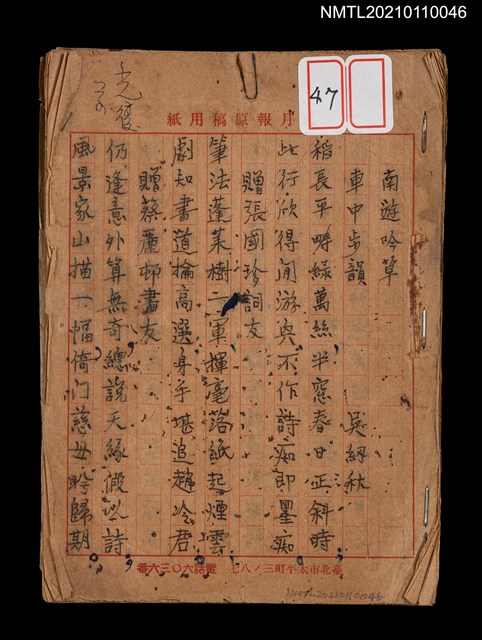 NMTL20210110046
47
月報原稿用紙
南遊吟草
車中步韻 吳紉秋
稻長平疇綠萬絲半窓春日正斜時
此行欣得閒游興不作詩痴即墨痴
贈張國珍詞友
筆法蓬萊樹一軍揮毫落紙起煙雲
劇知書道掄高選身手堪追趙冷君
贈蔡麗邨畫友
仍逢意外算無奇總說天緣假以詩
風景家山描一幅倚门慈母盼歸期
臺北市太平町三ノ八七 電話六〇三六番
NMTL20210110046